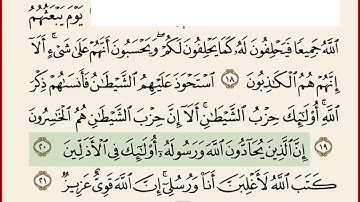 يَوْمَ يَبْعَثُهُمُ
ٱللَّهُ جَمِيعًا فَيَحْلِفُونَ لَهُۥ كَمَا يَحْلِفُونَ لَكُمْ وَيَحْسَبُونَ أَنَّهُمْ عَلَىٰ شَىْءٍ ۚ أَلَآ
إِنَّهُمْ هُمُ ٱلْكَـٰذِبُونَ ١٨ ٱسْتَحْوَذَ عَلَيْهِمُ ٱلشَّيْطَـٰنُ فَأَنسَىٰهُمْ ذِكْرَ
ٱللَّهِ ۚ أُو۟لَـٰٓئِكَ حِزْبُ ٱلشَّيْطَـٰنِ ۚ أَلَآ إِنَّ حِزْبَ ٱلشَّيْطَـٰنِ هُمُ ٱلْخَـٰسِرُونَ
١٩ إِنَّ ٱلَّذِينَ يُحَآدُّونَ ٱللَّهَ وَرَسُولَهُۥٓ أُو۟لَـٰٓئِكَ فِى ٱلْأَذَلِّينَ ٢٠
كَتَبَ ٱللَّهُ لَأَغْلِبَنَّ أَنَا۠ وَرُسُلِىٓ ۚ إِنَّ ٱللَّهَ قَوِىٌّ عَزِيزٌ ٢١